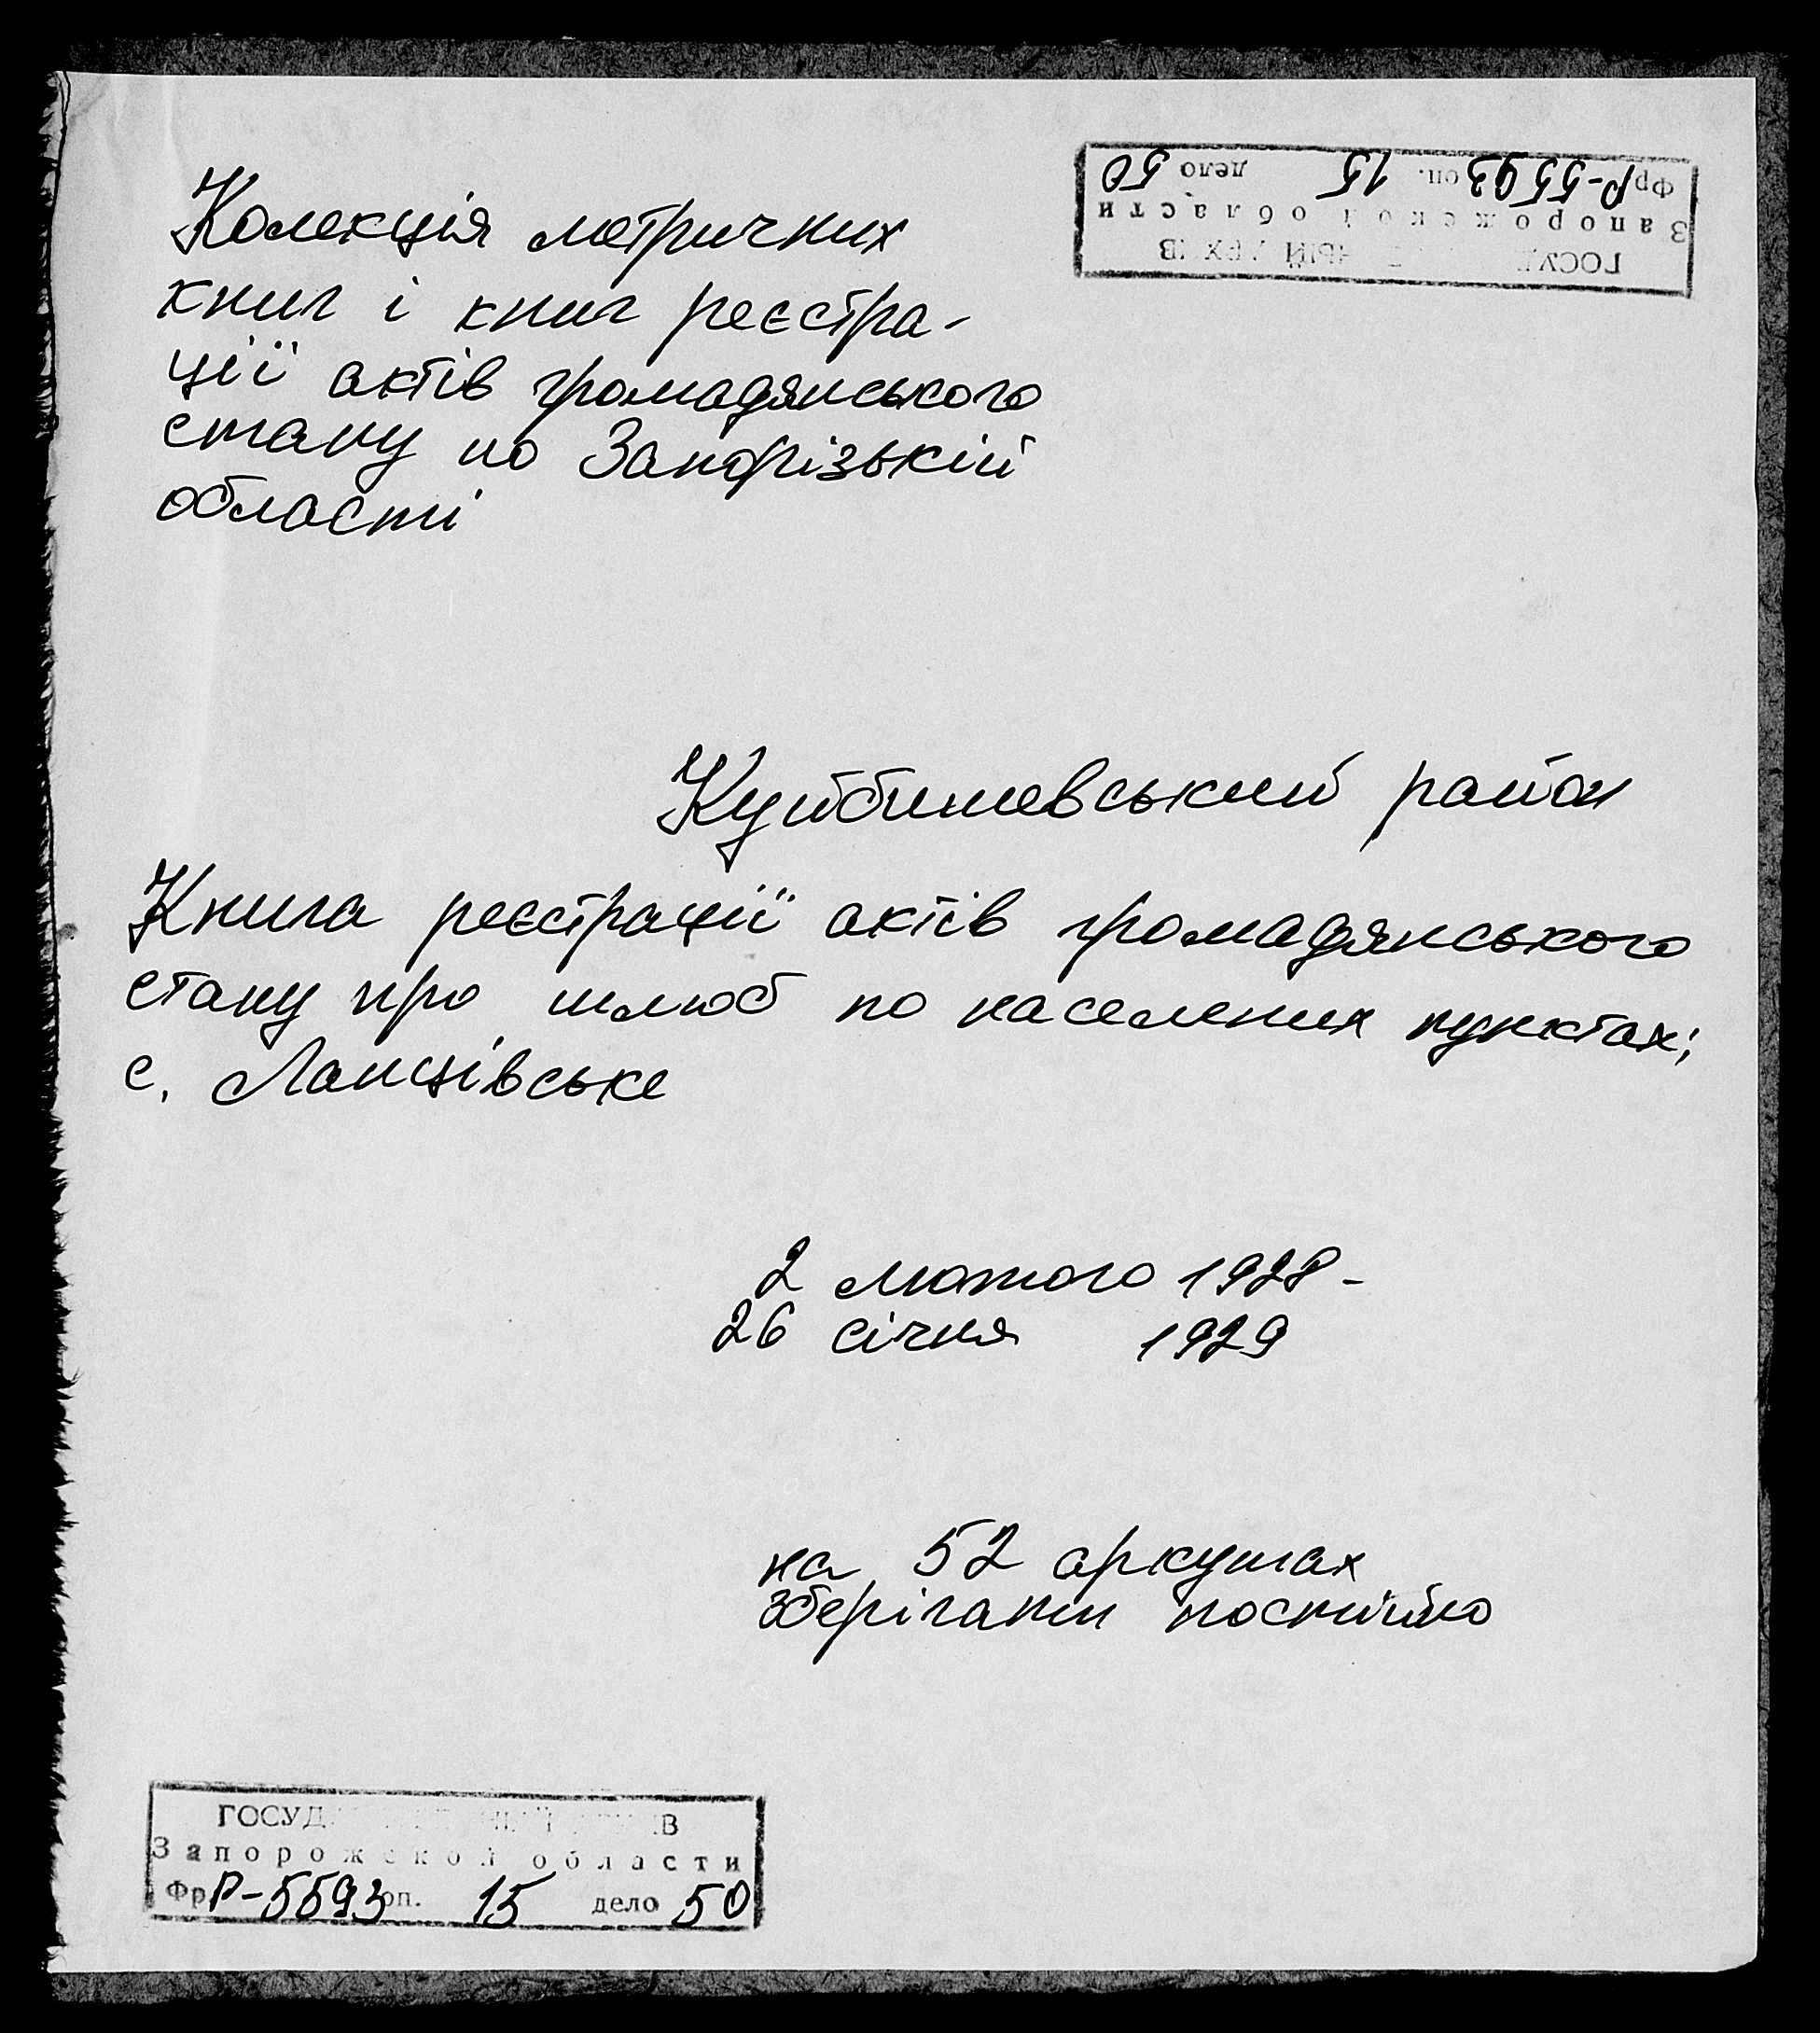 Колекція метричних
книг і книг реєстра-
ції актів громадянського
стану по Запорізькій
області
Фр Р-5593 оп. 15 дело 50
Запорожской области
Куйбишевський район
Книга реєстрації актів громадянського
стану про шлюб по населених пунктах:
с. Ланцівське
2 лютого 1928 -
26 січня 1929
на 52 аркушах
зберігати постійно
Запорожской области
Фр Р-5593 оп. 15 дело 50